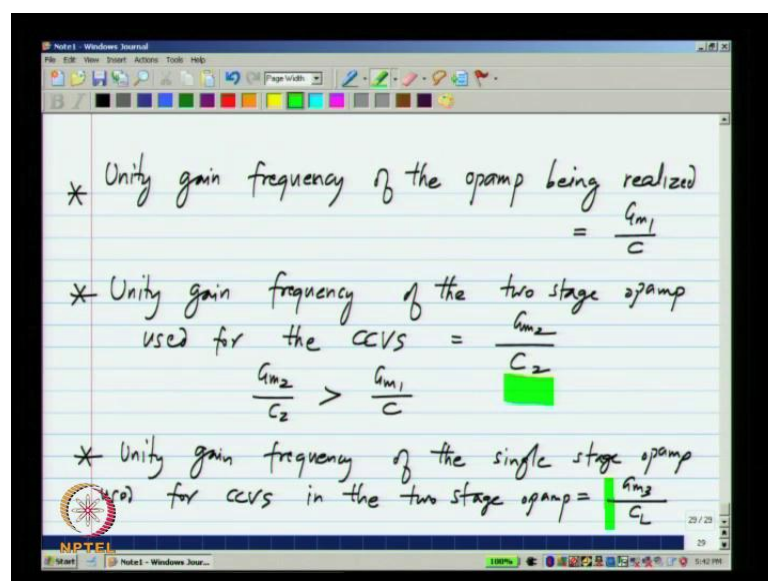 Note1 - Windows Journal
File Edit View Insert Actions Tools Help
Page Width
B I
* Unity gain frequency of the opamp being realized
= Gm1/C
* Unity gain frequency of the two stage opamp
used for the CCVS = Gm2/C2
Gm2/C2 > Gm1/C
* Unity gain frequency of the single stage opamp
used for CCVS in the two stage opamp = Gm3/CL
NPTEL
29 / 29
29
Start Note1 - Windows Jour... 100% 5:42 PM